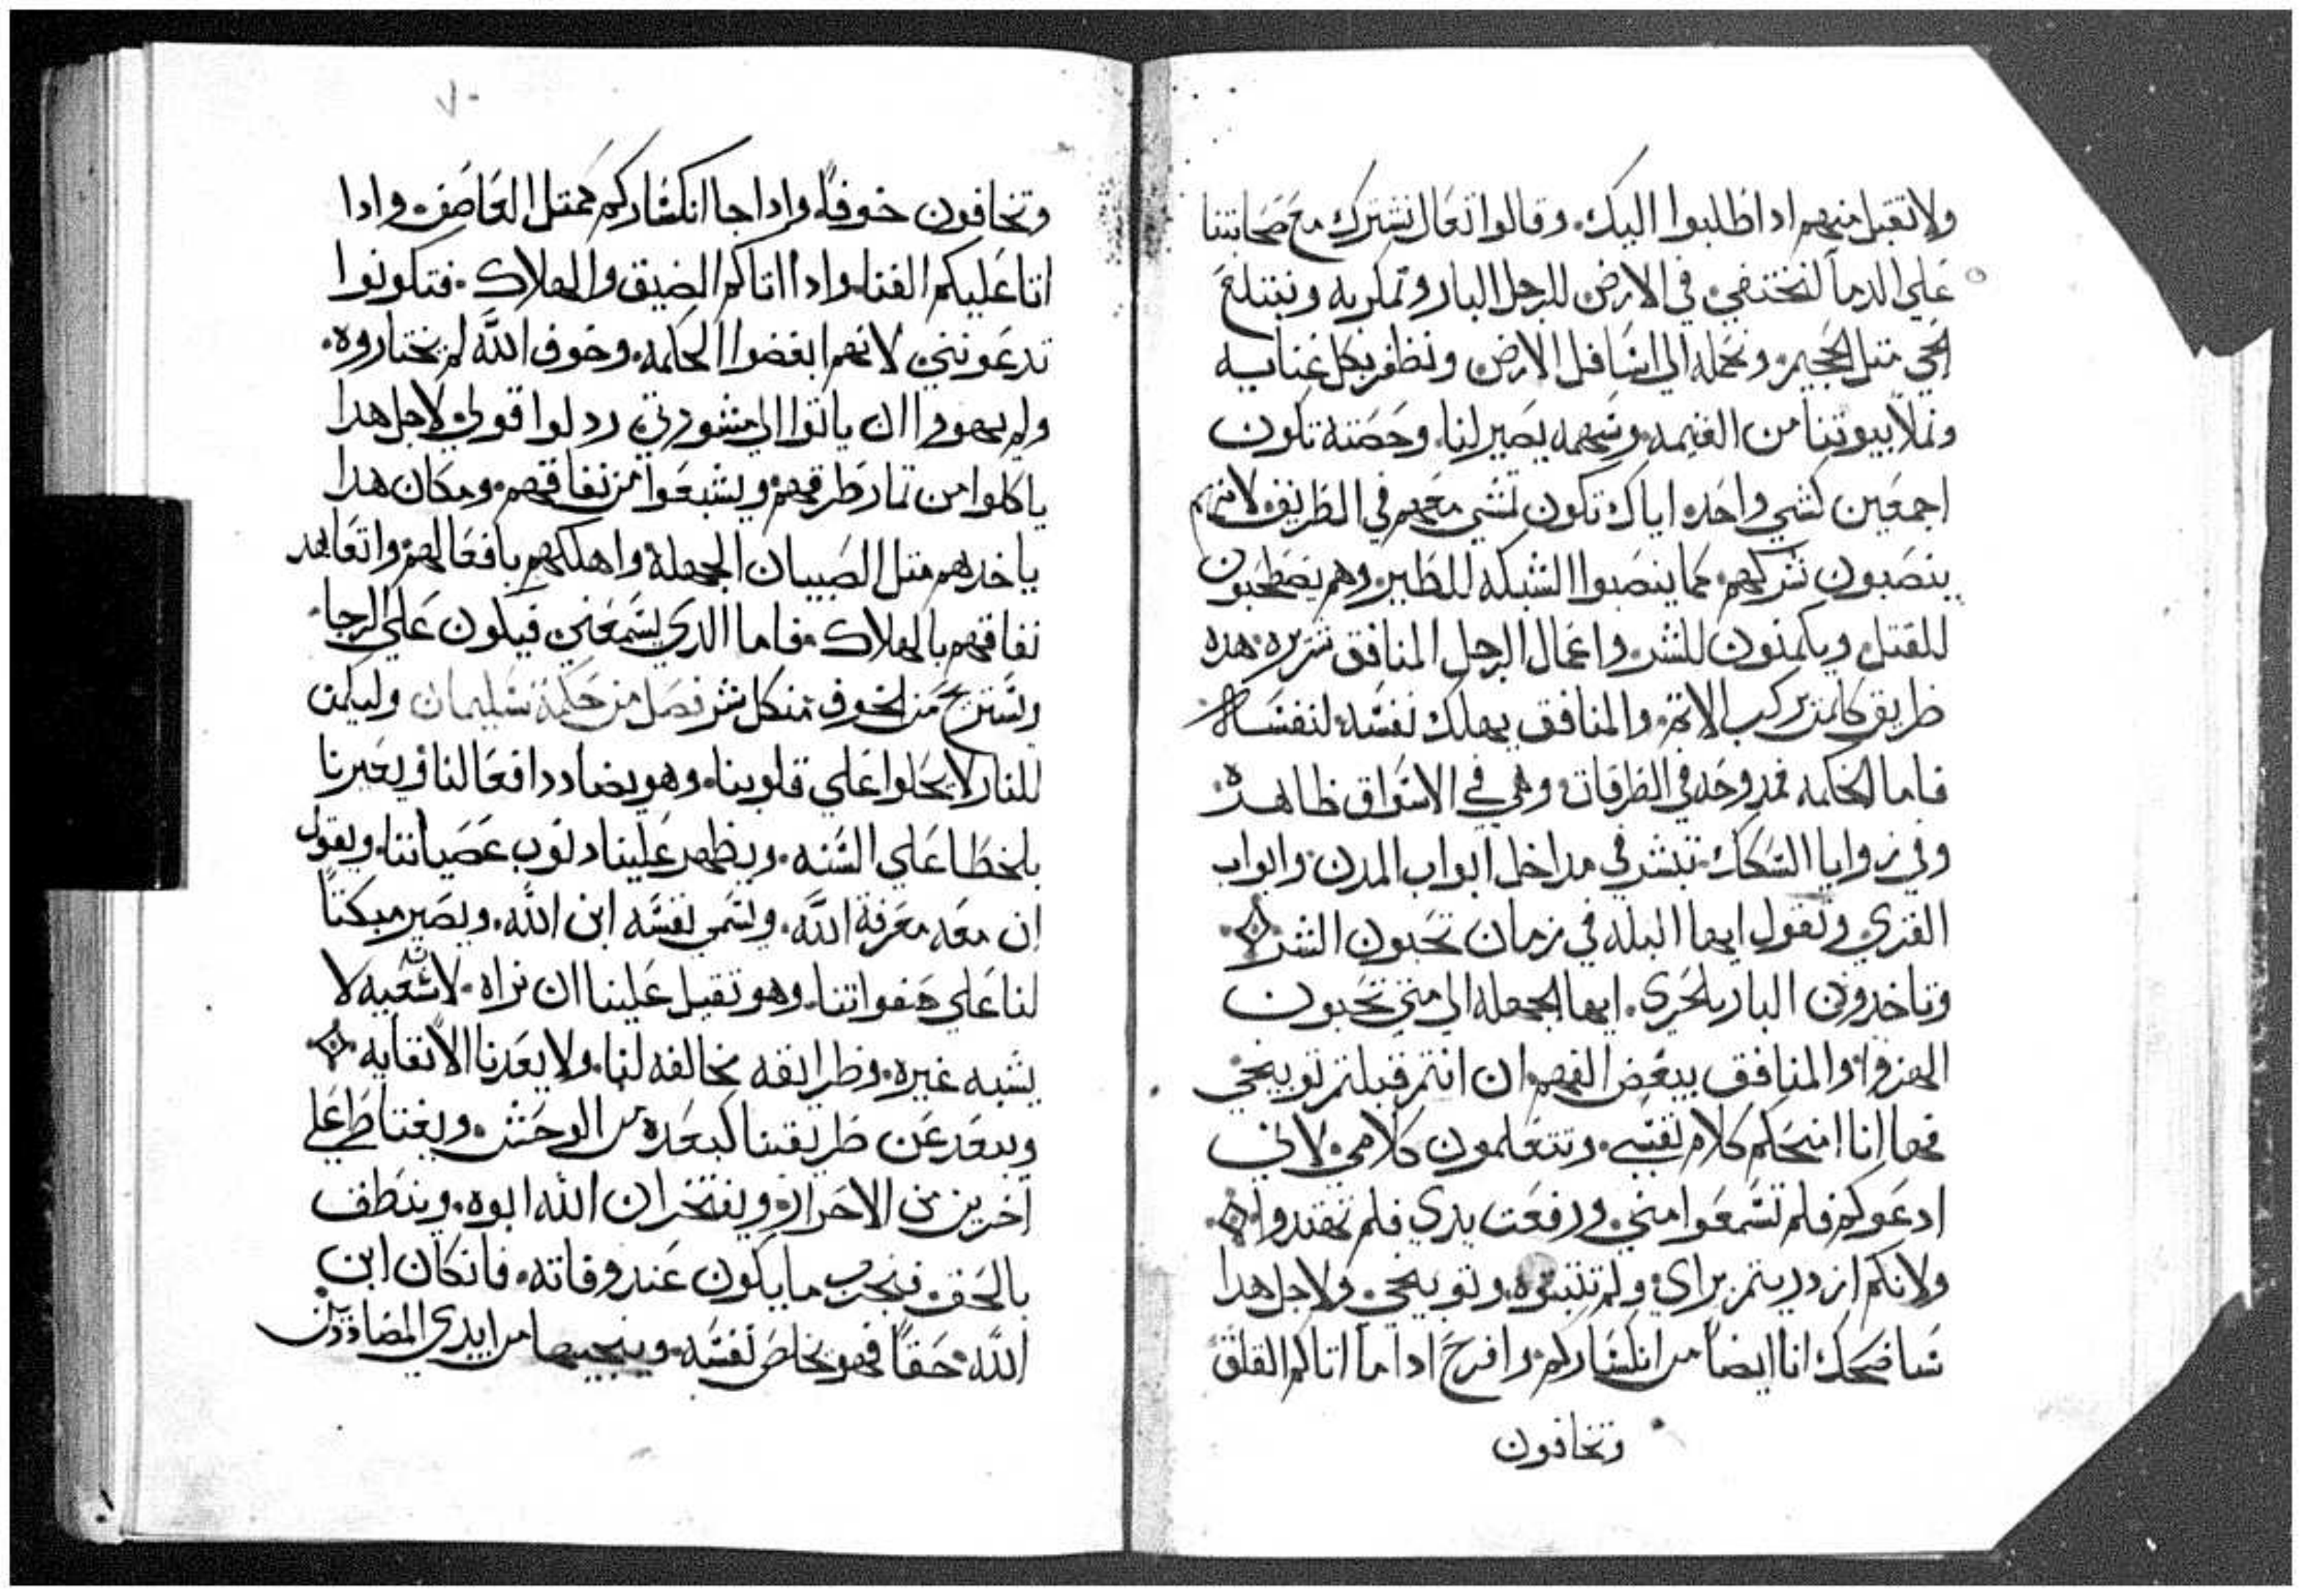 ولا تقبل منهم ادا طلبوا اليك. وقالوا تعال نشترك مع صحابتنا
علي الدما لنختفي في الارض للرجل البار ونمكر به ونبتلع
لحي متل الجحيم. ونحمله الي اسافل الارض ونظفر بكل غنايه
ونملا بيوتنا من الغنيمه. وسهمه يصير لنا. وحصته تكون
اجمعين كشي واحده اياك تكون تمشي معهم في الطريف لانهم
ينصبون شركهم. كما ينصبوا الشبكه للطير. وهم يصطحبون
للقتل. ويكمنون للشر. واعمال الرجل المنافق شريره. هده
طريق كلمن يركب الاتم. والمنافق يهلك نفسه لنفسه
فاما الحكمه ممدوحه في الطرقات وهي في الاسواق ظاهره.
وفي زوايا السكك. تبشر في مداخل ابواب المدن. وابواب
القري وتقول ايها البله في زمان تحبون الشر.
وتاخدون البار بالخزي. ايها الجهله الي متي تحبون
الهزوا. والمنافق يبغض الفهم. ان انتم قبلتم توبيخي
فها انا امنحكم كلام نفسي. وتتعلمون كلامي. لاني
ادعوكم فلم تسمعوا مني. ورفعت يدي فلم تهتدوا.
ولانكم ازدريتم براي. ولم تنتبوه. وتوبيخي. ولاجل هدا
ساضحك انا ايضا من انكساركم. وافرح ادا ما اتاكم القلق
وتخافون
٧٠
وتخافون خوفا. وادا جا انكساركم كمتل العاصف. وادا
اتا عليكم الفنا. وادا اتاكم الضيق والهلاك. فتكونوا
تدعونني. لانهم ابغضوا الحكمه. وخوف الله لم يختاروه.
ولم يهووا ان ياتوا الي مشورتي. ردلوا قولي. لاجل هدا
ياكلوا من تمار طرقهم. ويشبعوا من نفاقهم. ومكان هدا
ياخدهم متل الصبيان الجهلة واهلكهم بافعالهم. واتعاهد
نفاقهم بالهلاك. فاما الدي يسمعني فيكون علي الرجا.
ويستريح من الخوف من كل شر فصل من حكمة سليمان وليكمن
للنار لا يحلوا علي قلوبنا. وهو يضادد افعالنا ويعيرنا
بالخطا علي السنه. ويظهر علينا دنوب عصياننا. ويقول
ان معه معرفة الله. ويسمي نفسه ابن الله. ويصير مبكتا
لنا علي هفواتنا. وهو تقيل علينا ان نراه. لا سعيه لا
يشبه غيره. وطرايقه مخالفه لنا. ولا يعدنا الا نقايه
ويبعد عن طريقنا كبعده من الوحش. ويغتاط علي
اخرين من الاحرار. ويفتخر ان الله ابوه. وينطف
بالحق. فنجرب ما يكون عند وفاته. فان كان ابن
الله. حقا فهو يخلص نفسه. وينجيها من ايدي المضاددين